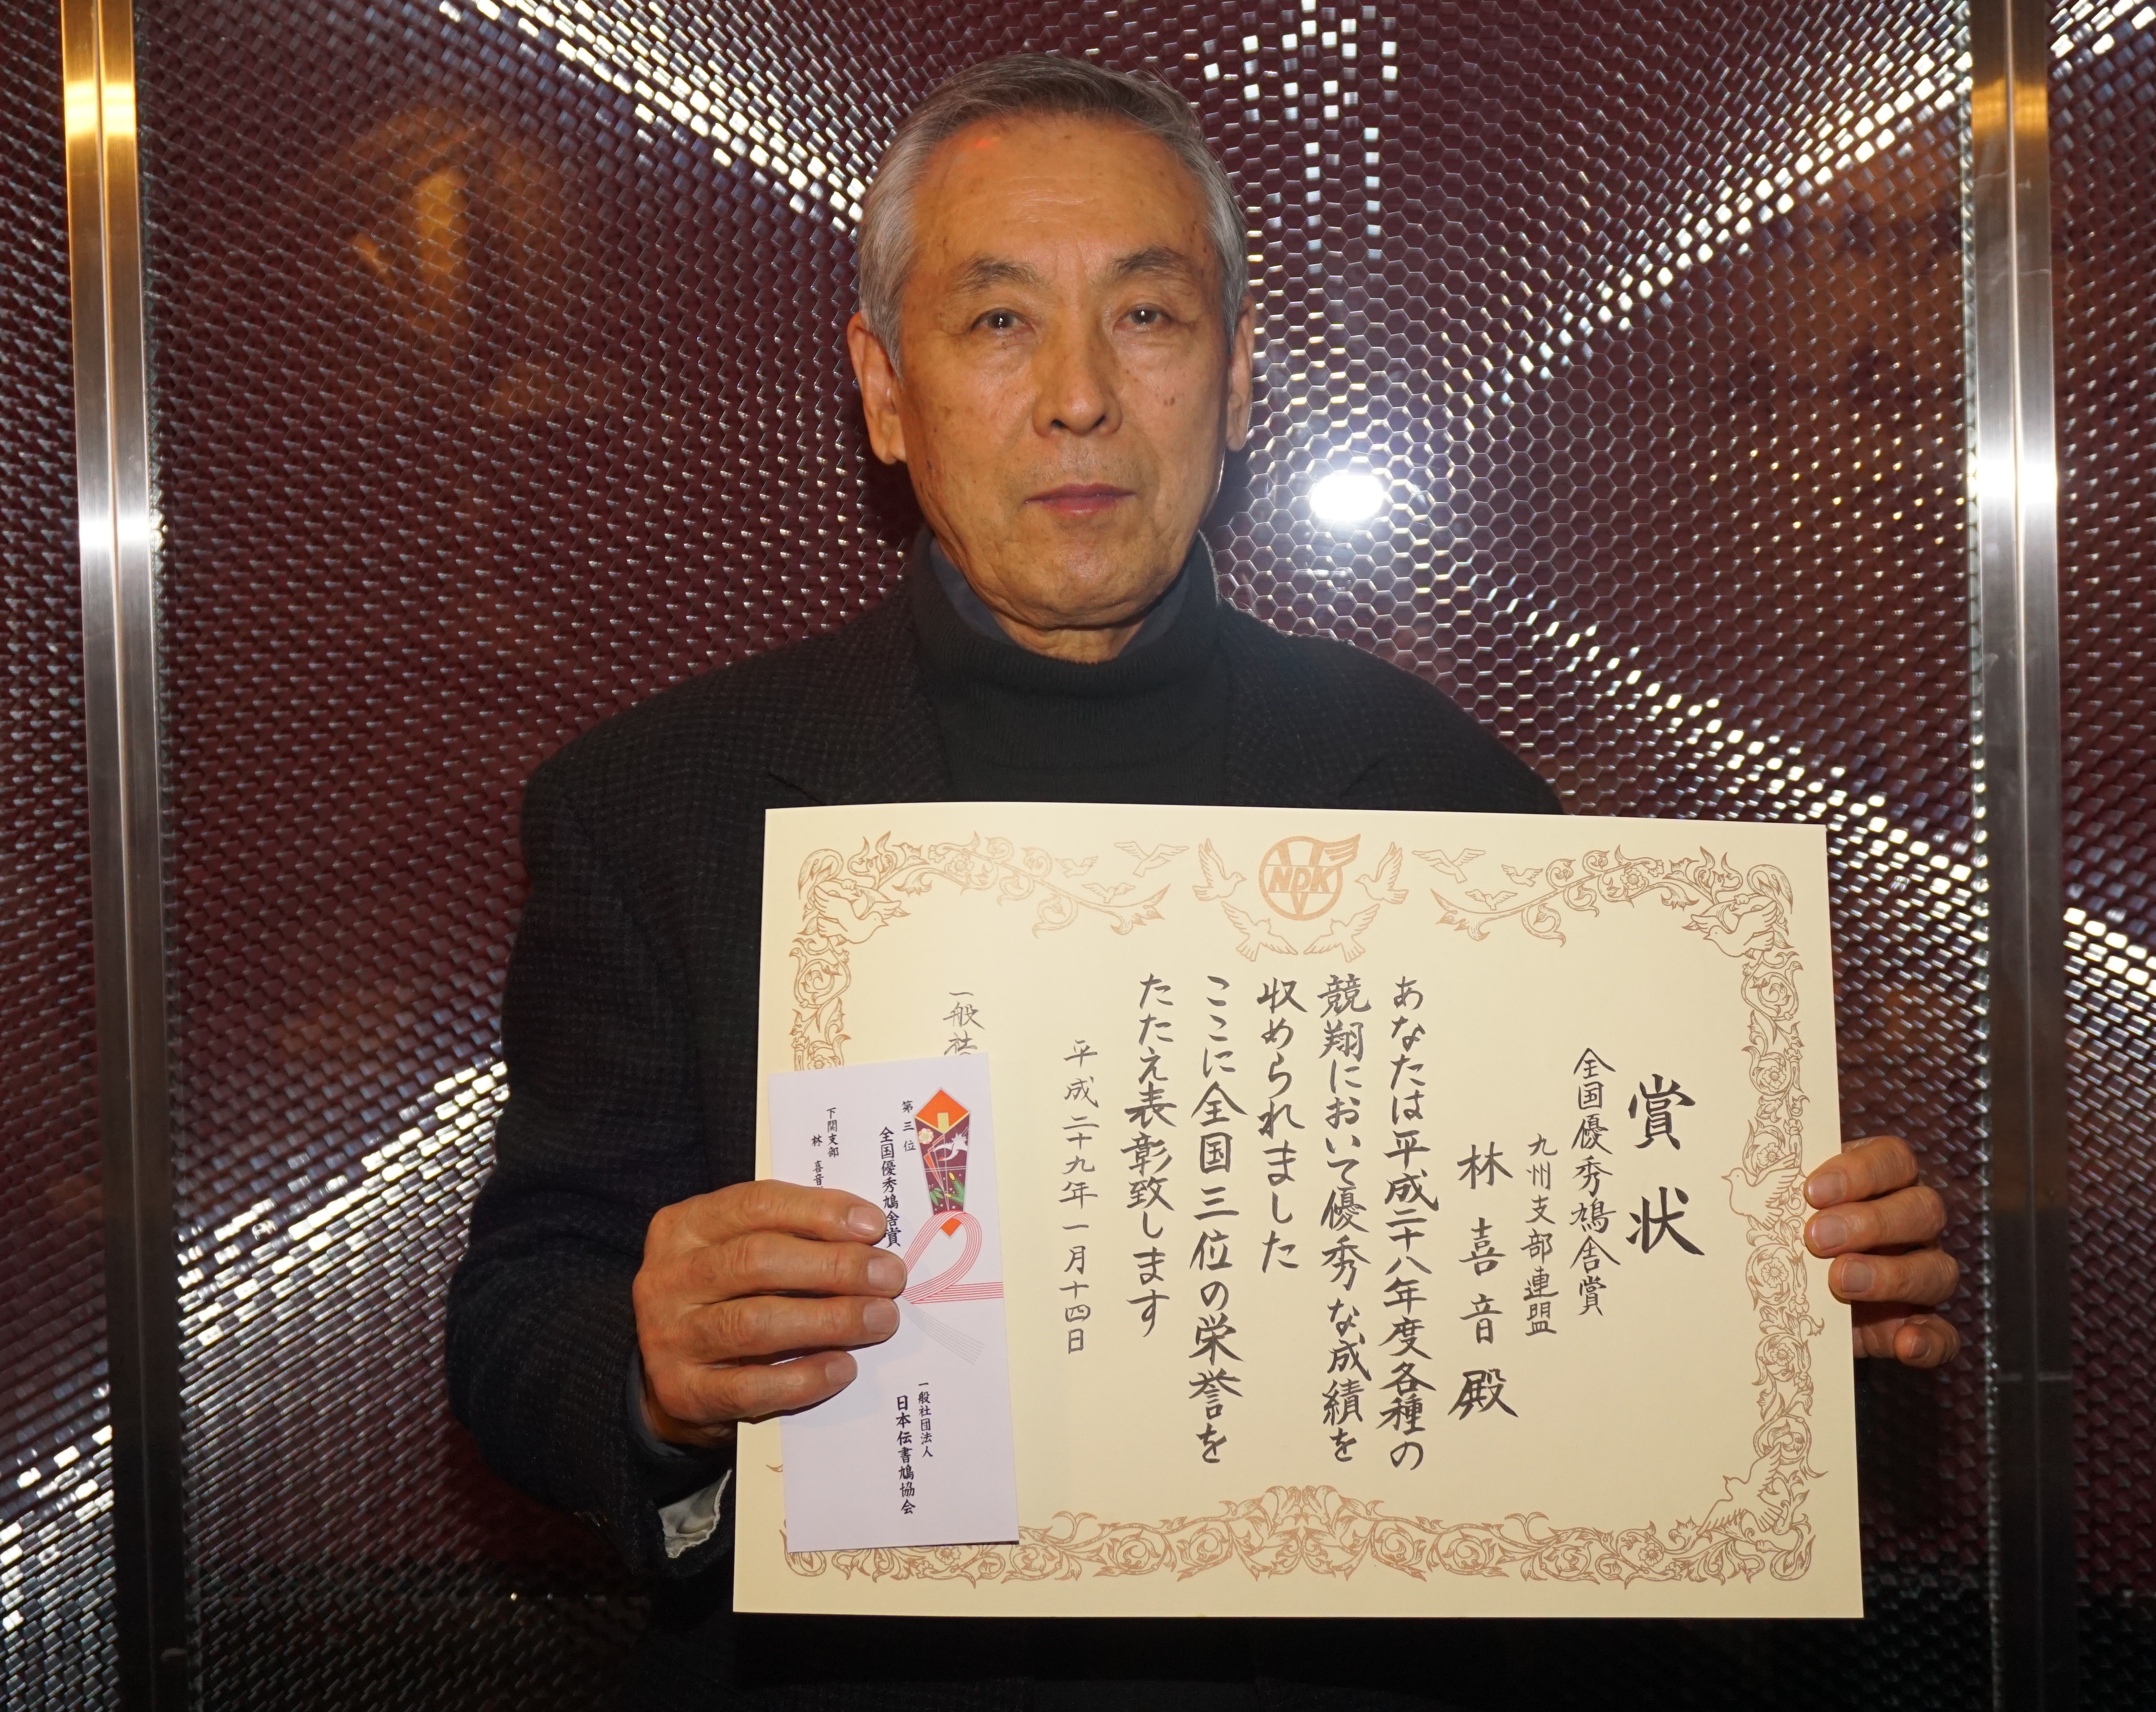 NDK
賞状
全国優秀鳩舎賞
九州支部連盟
林喜音殿
あなたは平成二十八年度各種の
競翔において優秀な成績を
収められました
ここに全国三位の栄誉を
たたえ表彰致します
平成二十九年一月十四日
一般社
第三位
全国優秀鳩舎賞
下関支部
林 喜音
一般社団法人
日本伝書鳩協会